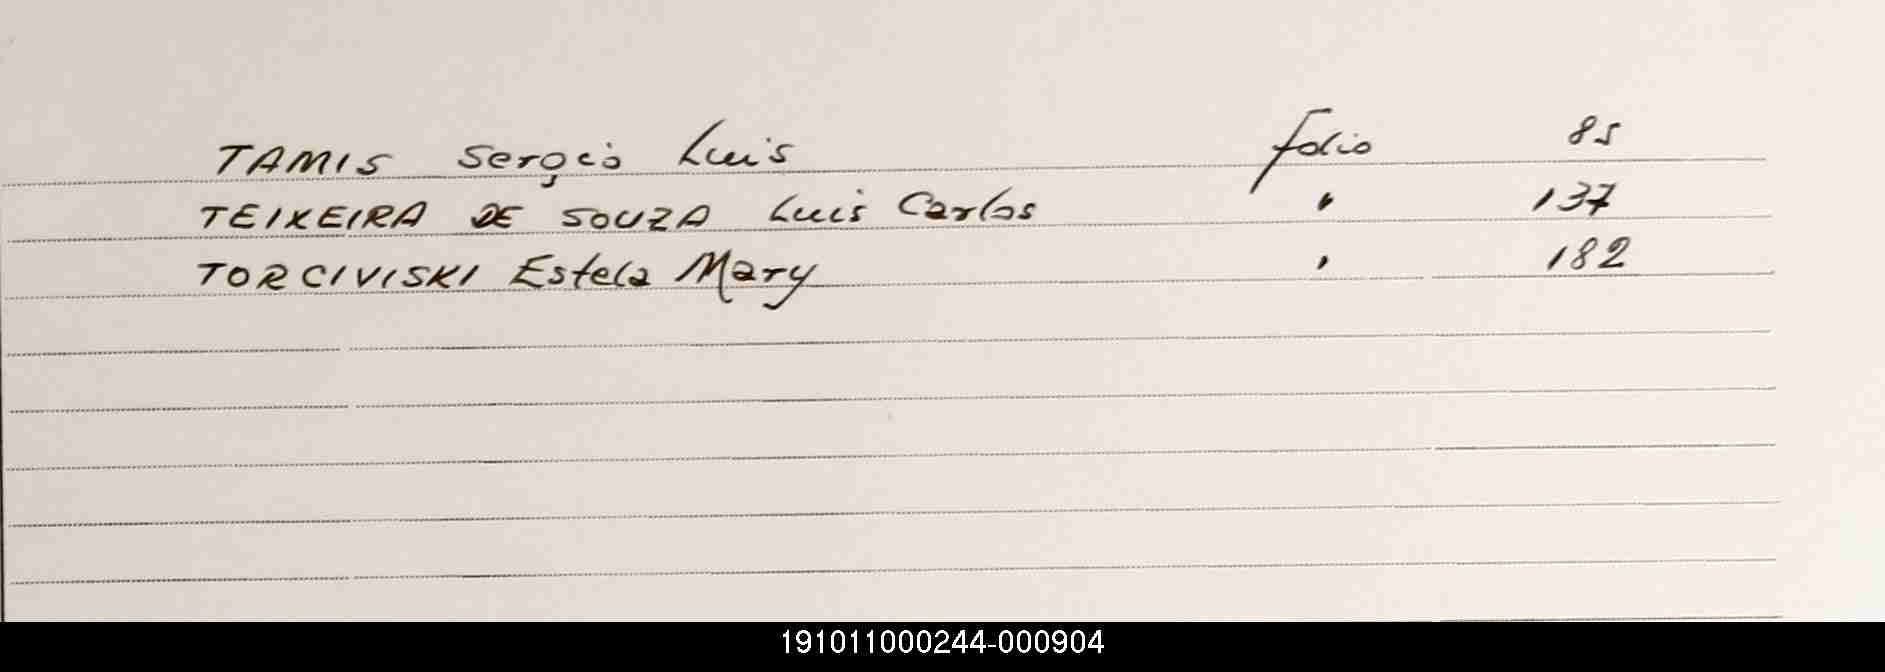 TAMIS Sergio Luis folio 85
TEIXEIRA DE SOUZA Luis Carlos " 137
TORCIVISKI Estela Mary " 182
191011000244-000904